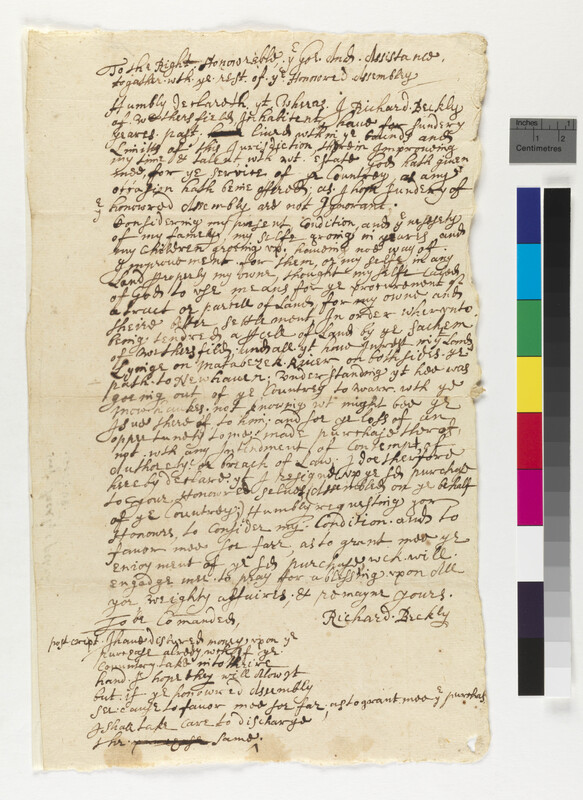 To the Right Honorable, ye Gor. And. Assistance,
togather. wth ye. rest. of. ye Honored Assembly
Humbly declareth yt Wheras. I Richard. Beckly
of Wethersfield Inhabitent, have for sundery
yeares past. lived within ye bounds and
Limits of this Jurisdiction therein Improveing
my time & talent wth wt. Estate God hath given
mee for ye service of ye Countrey, as any
ocation hath beine offered; as I hope sundery of
ye honored Assembly are not Ignorant.
Considering my present Condition, and ye nessesety
of my familey, my selfe growing in yeares and
my Children growing up. haveing noe way of
Improvement for them, or my selfe in any
Land properly my owne, thought my selfe Caled
of God to use meanes for ye procurement of
a tract or parsell of Land, for my owne and
theire better settlement In order wherunto
being tendred a psell of Land by ye Sachem
of Wethersfield, and all yt have Intrest in ye Land
Lyinge on Matabezek River on both sides. ye
path to Newhaven. Understanding yt hee was
goeing out of ye Countrey to warr. wth ye
mowhaukes. not knowing wt might bee ye
Issue there of to him, and for ye loss of an
oppertunety to mee: made purchase therof;
not. wth any Intendment of Contempt of
Authorety: or breach of Law. I doe therfore
heerby declare yt I resigne up ye sd purchase
to your Honoured selves assembled on ye behalf
of ye Countrey; Humbly requesting yor
Honours, to Consider my Condition. and to
favor mee soe farr, as to grant mee ye
enjoyment of ye sd purchase wch. will.
engadge mee to pray for a blessing upon all
yor weighty affaires, & remayne yours.
To be Comanded, Richard. Beckly
post cript I have disbursed money upon ye
Purchase already wch if ye
Countrey take into theire
hand I hope they will alow yt
but. if ye honoured Assembly
see cause to favor mee soe far, as to grant mee ye purchas
I shall take Care to discharge
the same.
Inches
1
2
Centimetres